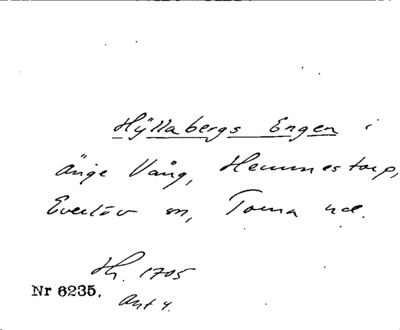 Hyllabergs Engen i
Änge Vång, Hemmestorp,
Everlöv sn, Torna hd.
Hh. 1705
Nr 6235. Akt 4.